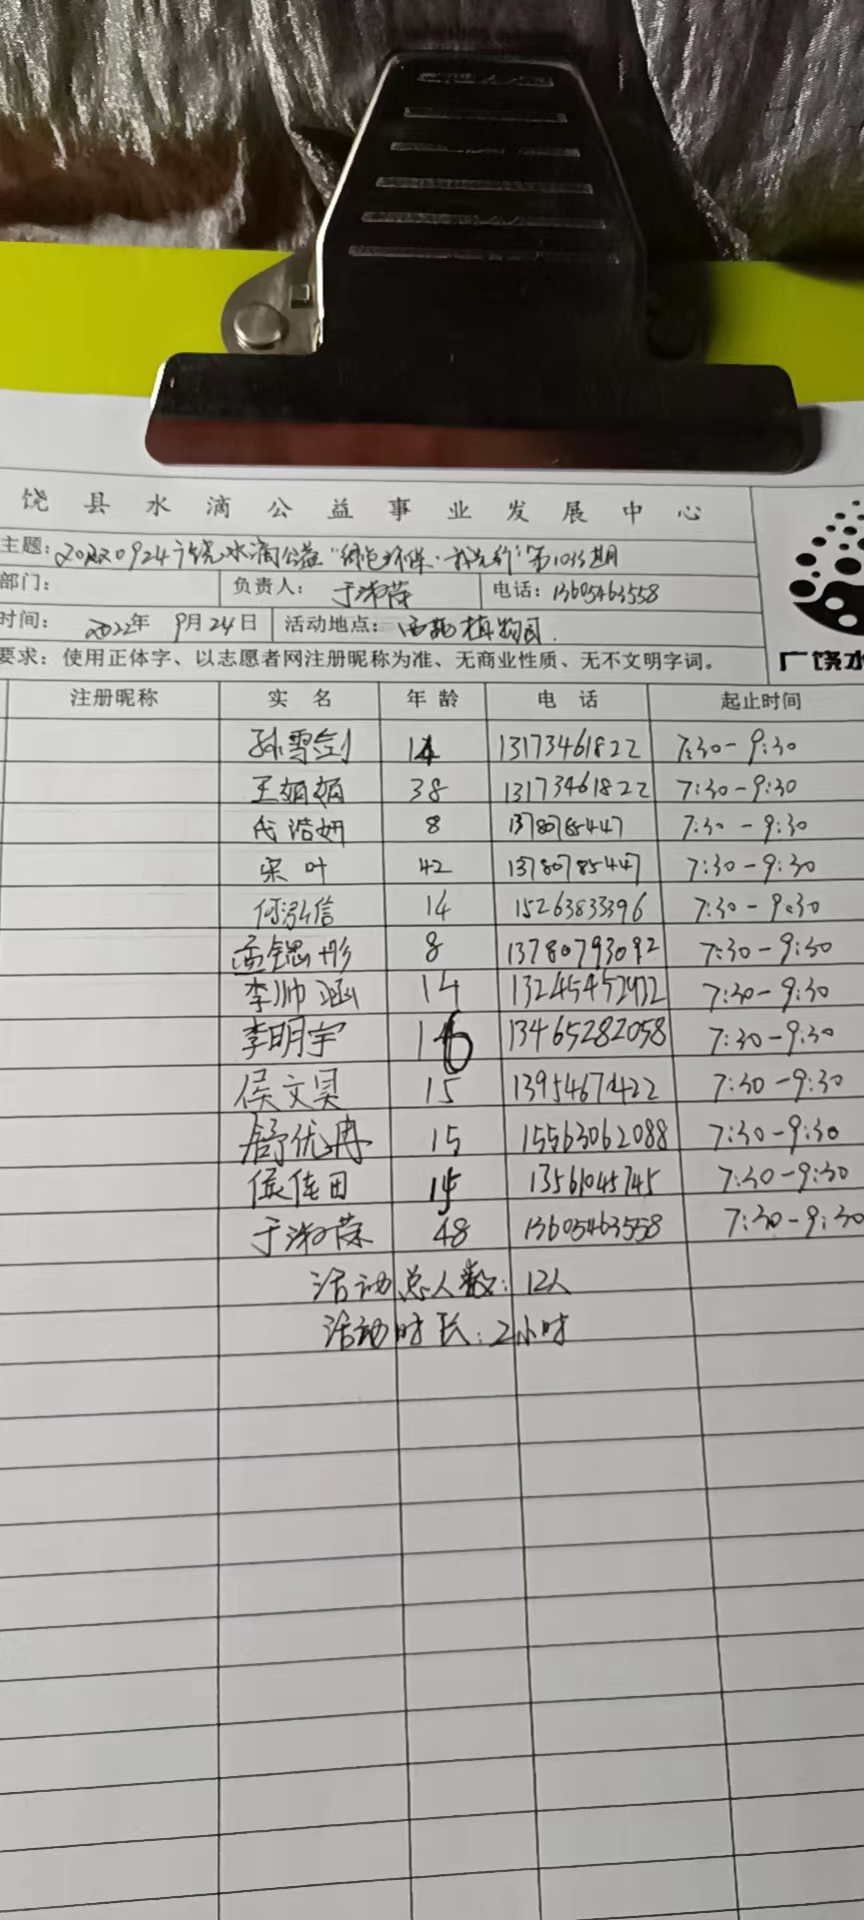 饶县水滴公益事业发展中心
主题: 20220924广饶水滴公益"绿色环保·我先行"第1033期
部门: 负责人: 于淑荣 电话: 13605463558
时间: 2022年 9月24日 活动地点: 西苑植物园.
要求: 使用正体字、以志愿者网注册昵称为准、无商业性质、无不文明字词。
广饶水
注册昵称 实名 年龄 电话 起止时间
孙雪剑 14 13173461822 7:30-9:30
王娟娟 38 13173461822 7:30-9:30
代浩妍 8 13780785447 7:30-9:30
宋叶 42 13780785447 7:30-9:30
何泓信 14 15263833396 7:30-9:30
孟锶彤 8 13780793092 7:30-9:30
李帅涵 14 7:30-9:30
李明宇 16 13465282058 7:30-9:30
侯文昊 15 7:30-9:30
舒优冉 15 15563062088 7:30-9:30
侯佳田 15 13561045745 7:30-9:30
于淑荣 48 13605463558 7:30-9:30
活动总人数: 12人
活动时长: 2小时